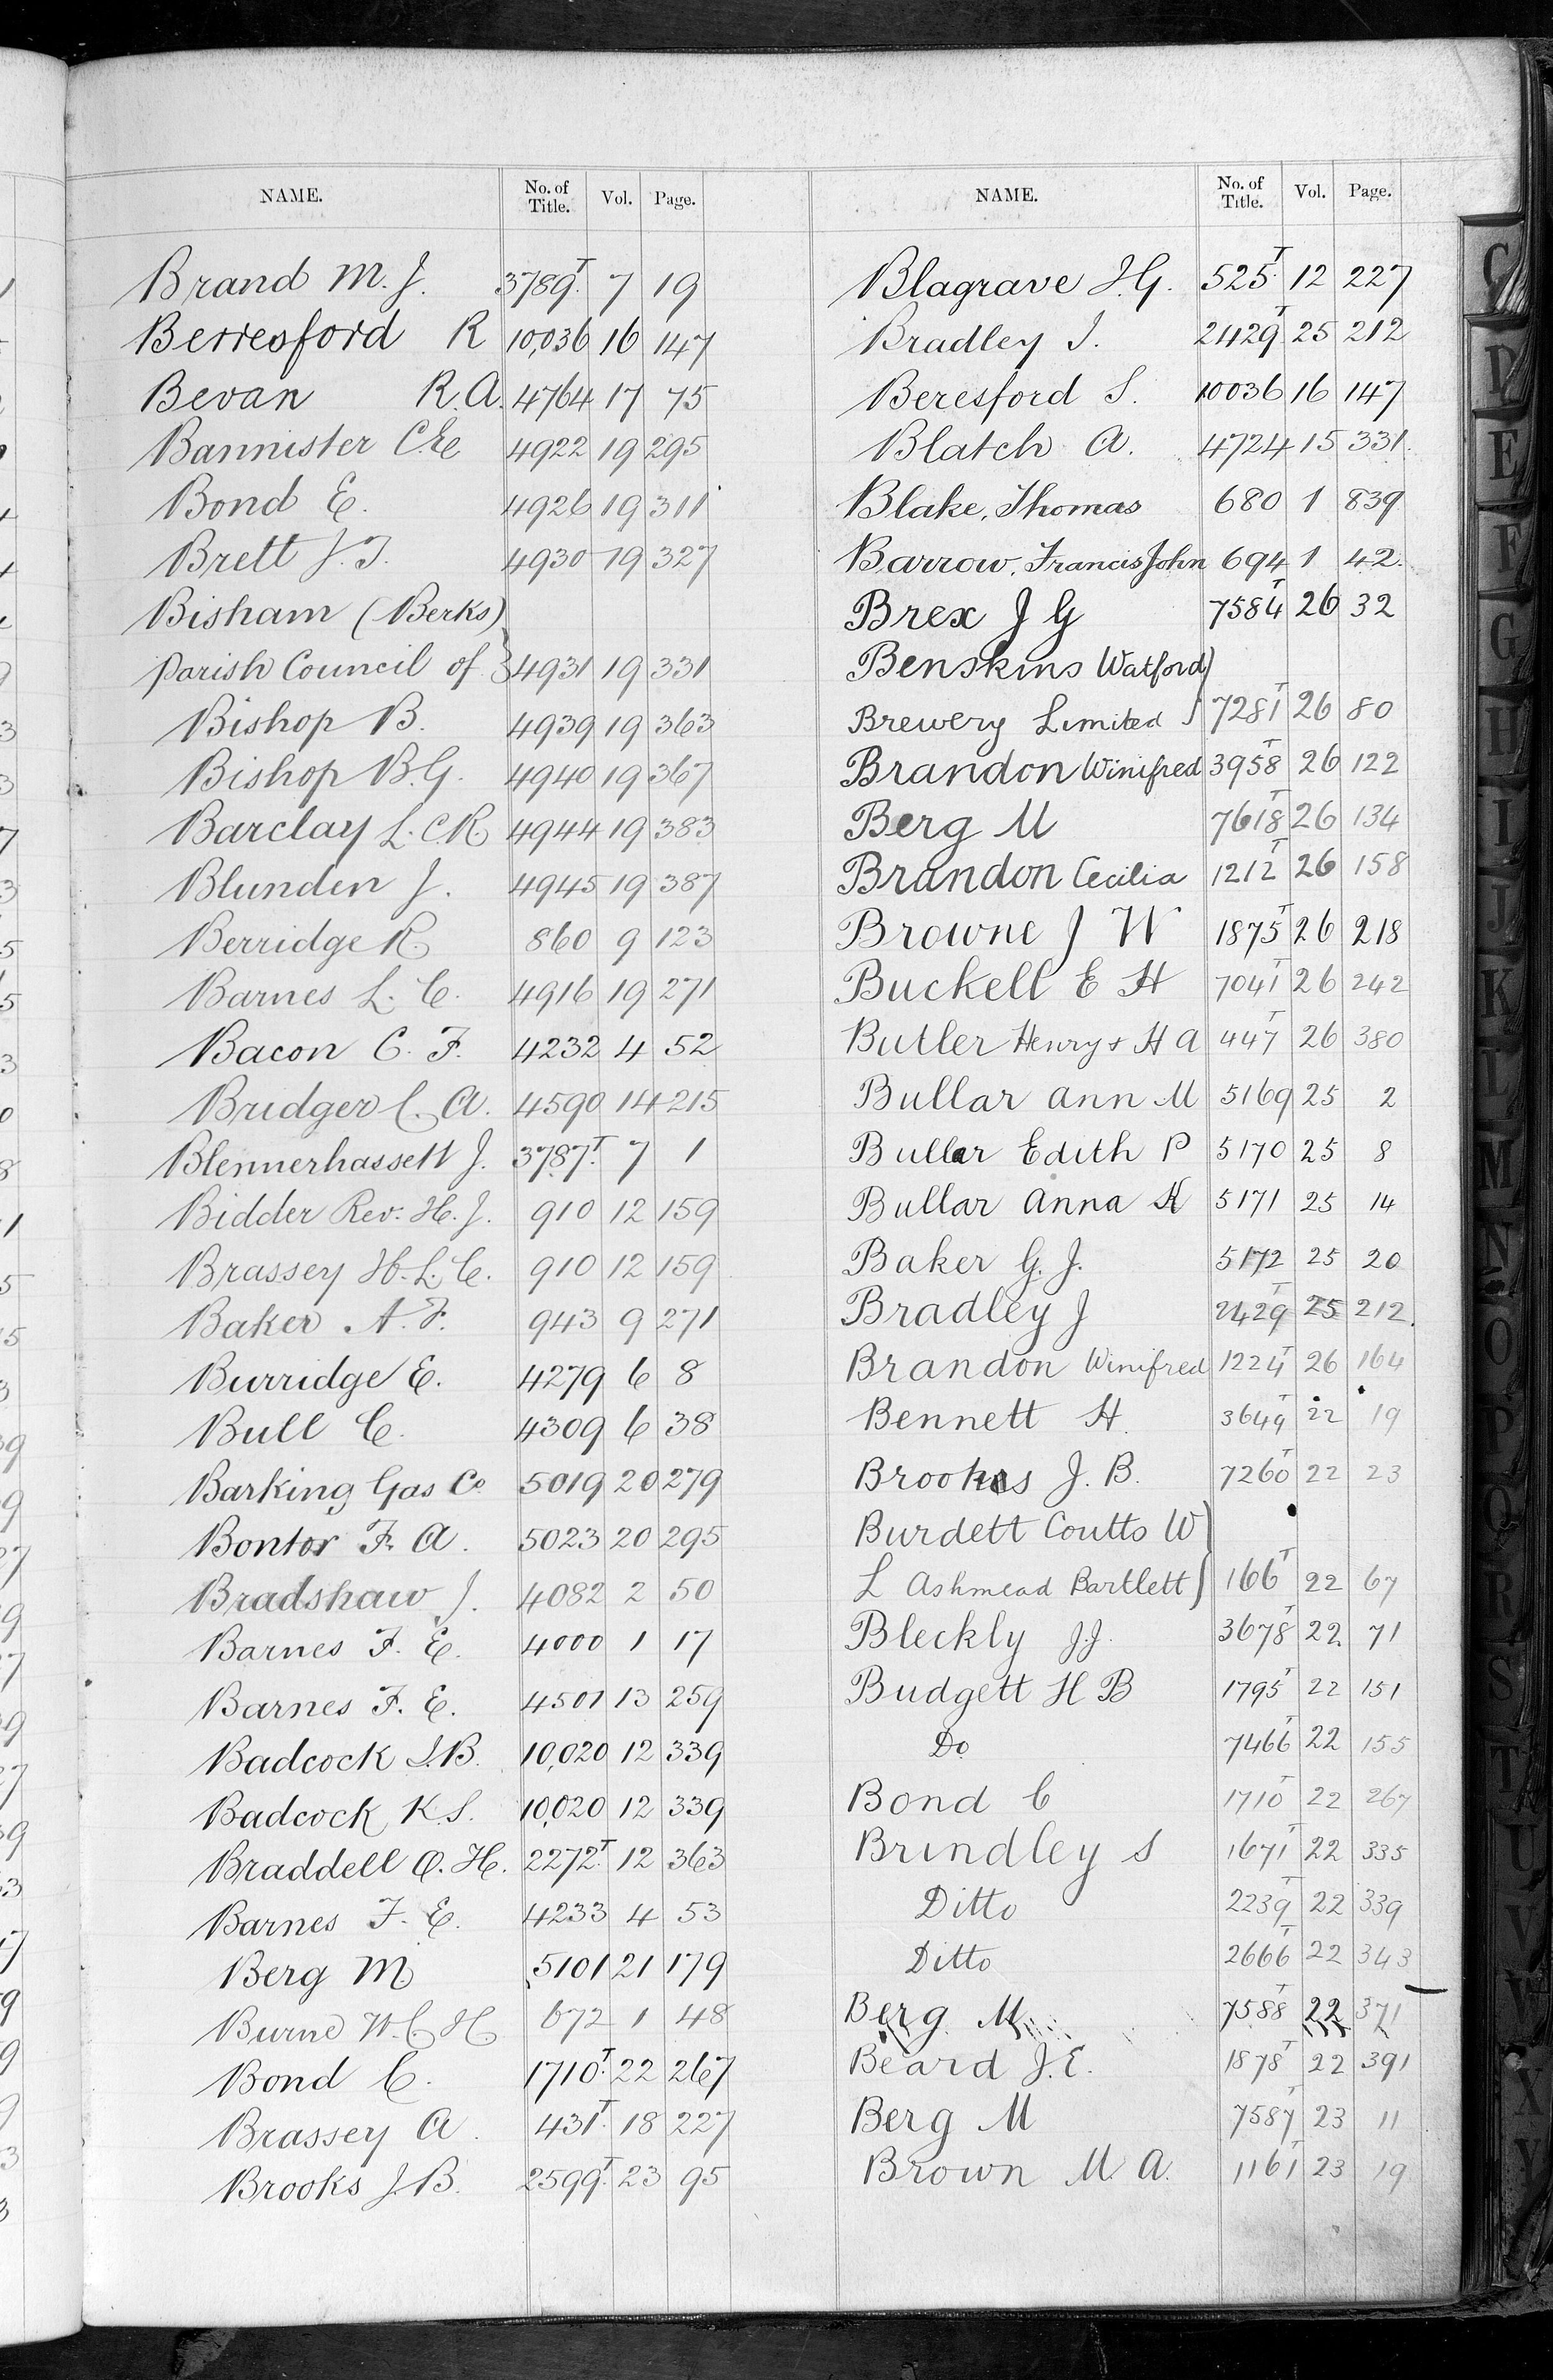 NAME. No. of Title. Vol. Page.
Brand M. J. 3789T. 7 19
Berresford R 10,036 16 147
Bevan R. A. 4764 17 75
Bannister C. E. 4922 19 295
Bond E. 4926 19 311
Brett J. T. 4930 19 327
Bisham (Berks)
Parish Council of } 4931 19 331
Bishop B. 4939 19 363
Bishop B. G. 4940 19 367
Barclay L. C. R. 4944 19 383
Blunden J. 4945 19 387
Berridge R. 860 9 123
Barnes L. C. 4916 19 271
Bacon C. F. 4232 4 52
Bridger C. A. 4590 14 215
Blennerhassett J. 3787T. 7 1
Bidder Rev. H. J. 910 12 159
Brassey H. L. C. 910 12 159
Baker A. F. 943 9 271
Burridge E. 4279 6 8
Bull C. 4309 6 38
Barking Gas Co 5019 20 279
Bontor F. A. 5023 20 295
Bradshaw J. 4082 2 50
Barnes F. E. 4000 1 17
Barnes F. E. 4501 13 259
Badcock I. B. 10,020 12 339
Badcock K. S. 10,020 12 339
Braddell O. H. 2272T. 12 363
Barnes F. E. 4233 4 53
Berg M 5101 21 179
Burne W. C. H 672 1 48
Bond C. 1710T. 22 267
Brassey A. 431T. 18 227
Brooks J. B. 2599T. 23 95
NAME. No. of Title. Vol. Page.
Blagrave J. G. 525T. 12 227
Bradley J. 2429T 25 212
Beresford S. 10036 16 147
Blatch A. 4724 15 331.
Blake, Thomas 680 1 839
Barrow, Francis John 694 1 42.
Brex J G 7584T 26 32
Benskins Watford }
Brewery Limited } 7281T 26 80
Brandon Winifred 3958T 26 122
Berg M 7618T 26 134
Brandon Cecilia 1212T 26 158
Browne J W 1875T 26 218
Buckell E H 7041T 26 242
Butler Henry & H A 447T 26 380
Bullar Ann M 5169 25 2
Bullar Edith P 5170 25 8
Bullar Anna K 5171 25 14
Baker G. J. 5172 25 20
Bradley J 2429T 25 212.
Brandon Winifred 1224T 26 164
Bennett H. 3649T 22 19
Brookes J. B. 7260T 22 23
Burdett Coutts W }
L Ashmead Bartlett } 166T 22 67
Bleckly J. J. 3678T 22 71
Budgett H B 1795T 22 151
Do 7466T 22 155
Bond C 1710T 22 267
Brindley S 1671T 22 335
Ditto 2239T 22 339
Ditto 2666T 22 343
Berg M 7588T 22 371
Beard J. E. 1878T 22 391
Berg M 7587T 23 11
Brown M. A. 1161T 23 19
C
D
E
F
G
H
I
J
K
L
M
N
O
P
Q
R
S
T
U
V
W
X
Y